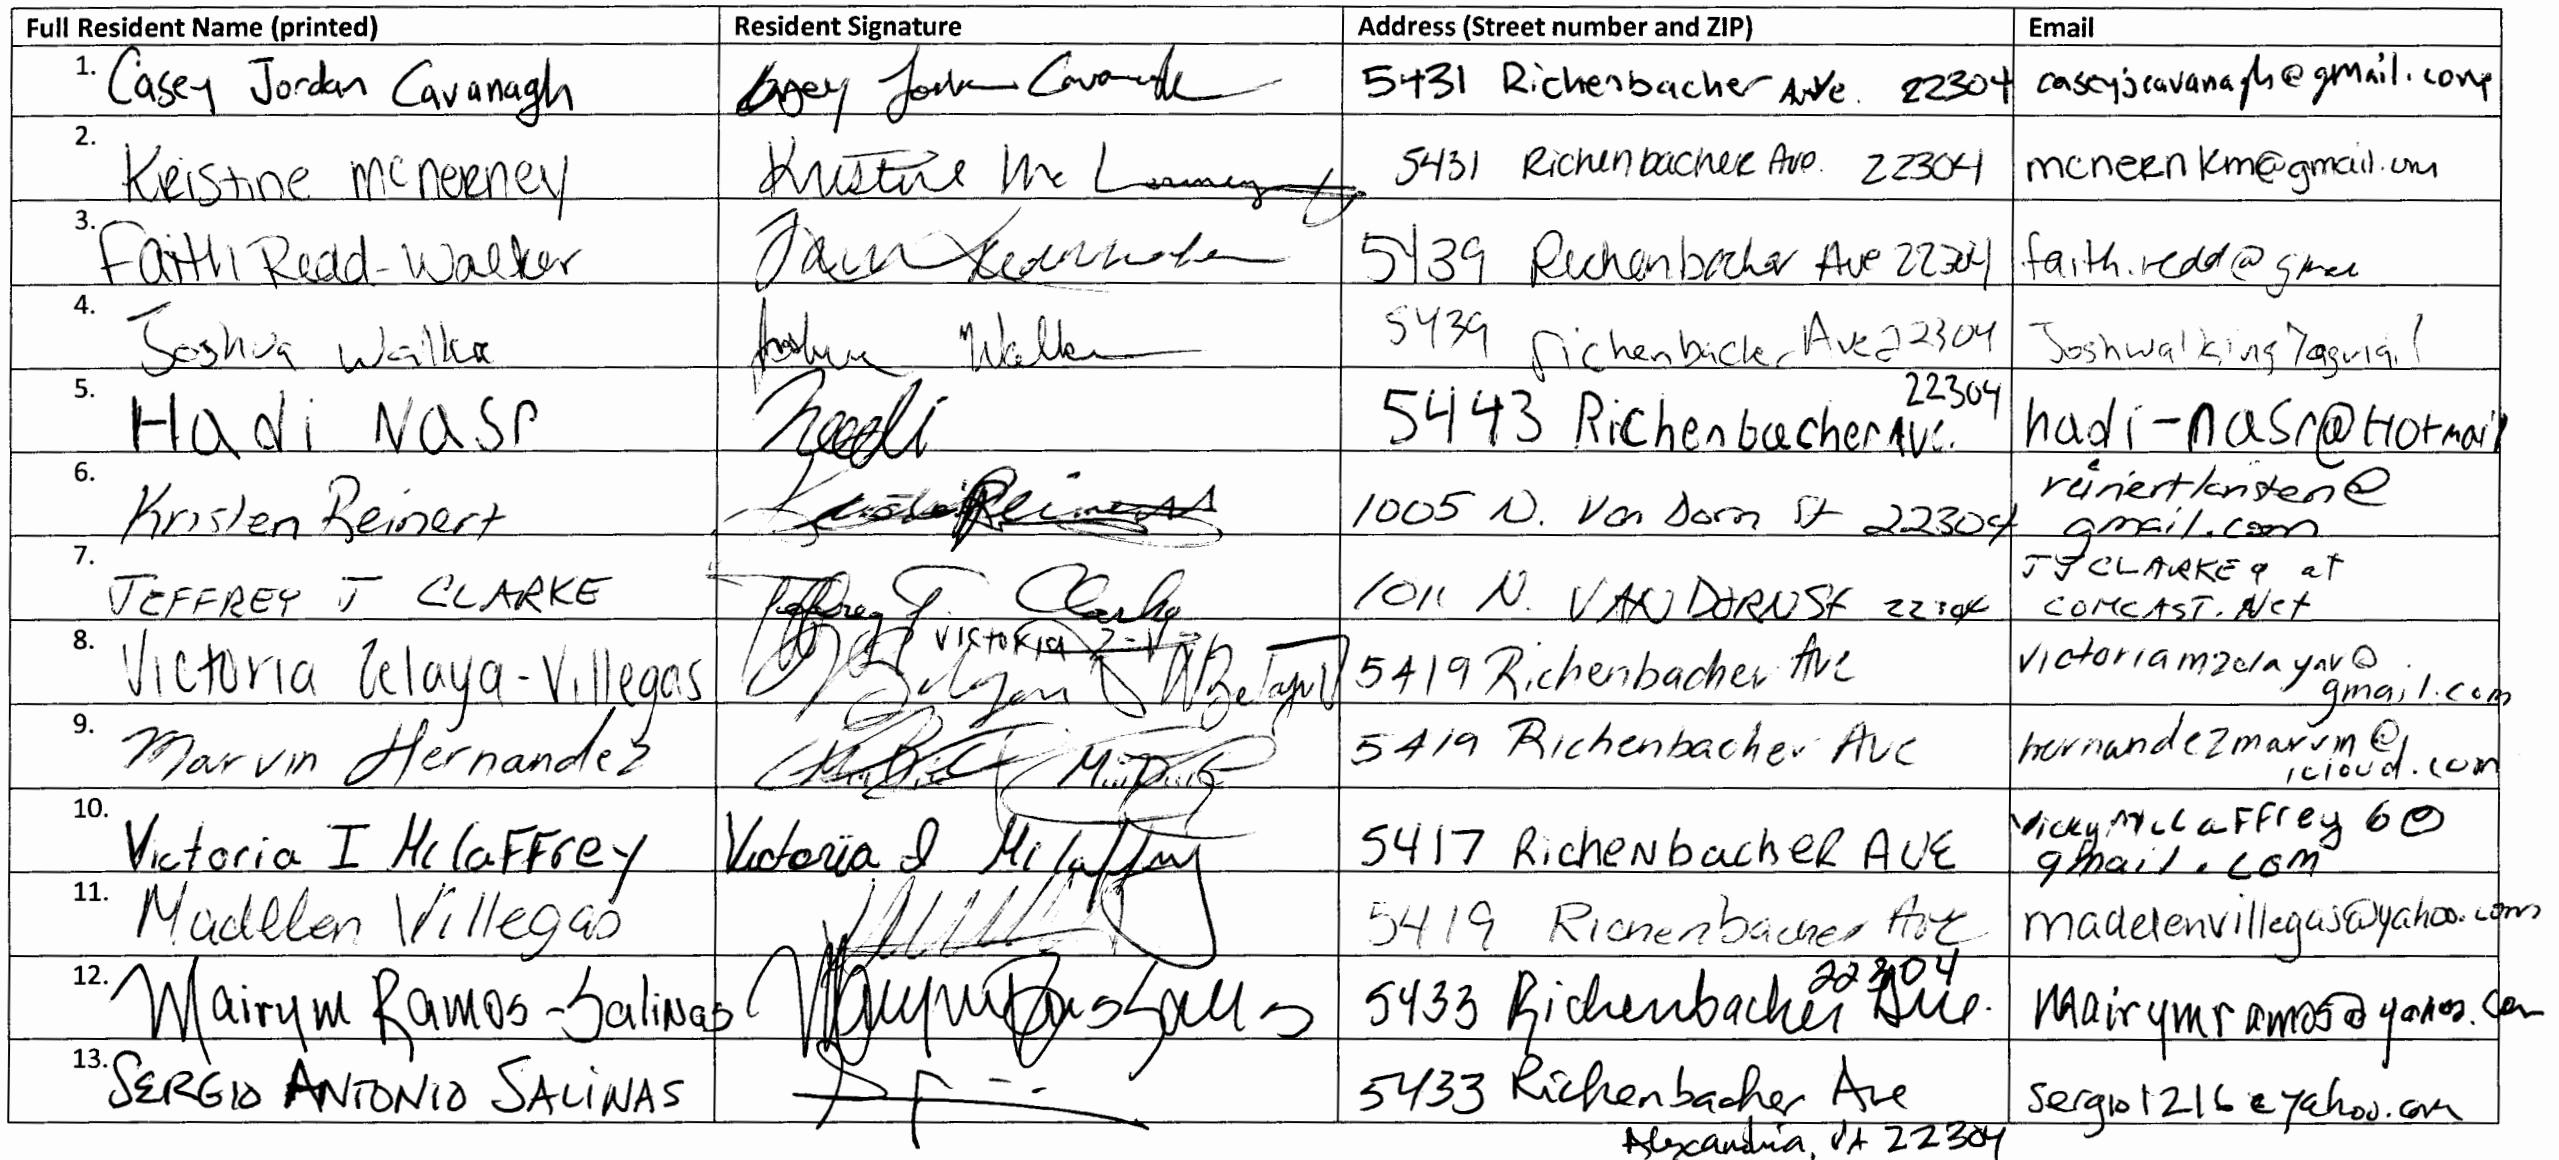 Full Resident Name (printed) Resident Signature Address (Street number and ZIP) Email
1. Casey Jordan Cavanagh Casey Jordan Cavanagh 5431 Richenbacher Ave. 22304 caseyjcavanagh@gmail.com
2. Kristine McNerney Kristine Mc 5431 Richenbacher Ave. 22304 mcnernkm@gmail.com
3. Faith Redd-Walker 5439 Richenbacher Ave 22304 faith.redd@
4. Joshua Walker Joshua Walker 5439 Richenbacher Ave 22304
22304
5. Hadi Nasr Hadi 5443 Richenbacher Ave. hadi-nasr@Hotmail
6. Kristen Reinert 1005 N. Van Dorn St 22304 reinertkristen@
gmail.com
7. JEFFREY J CLARKE Jeffrey J. Clarke 1011 N. VAN DORN St 22304 JJCLARKE9 at
COMCAST.Net
8. Victoria Zelaya-Villegas Victoria 5419 Richenbacher Ave victoriamzelayav@
gmail.com
9. Marvin Hernandez 5419 Richenbacher Ave hernandezmarvin@
icloud.com
10. Victoria I McLaffrey Victoria I McLaffrey 5417 Richenbacher AVE VickyMcLaffrey6@
gmail.com
11. Madelen Villegas 5419 Richenbacher Ave madelenvillegas@yahoo.com
22304
12. Mairym Ramos-Salinas 5433 Richenbacher Ave. mairymramos@yahoo.com
13. SERGIO ANTONIO SALINAS 5433 Richenbacher Ave sergio1216@yahoo.com
Alexandria, VA 22304